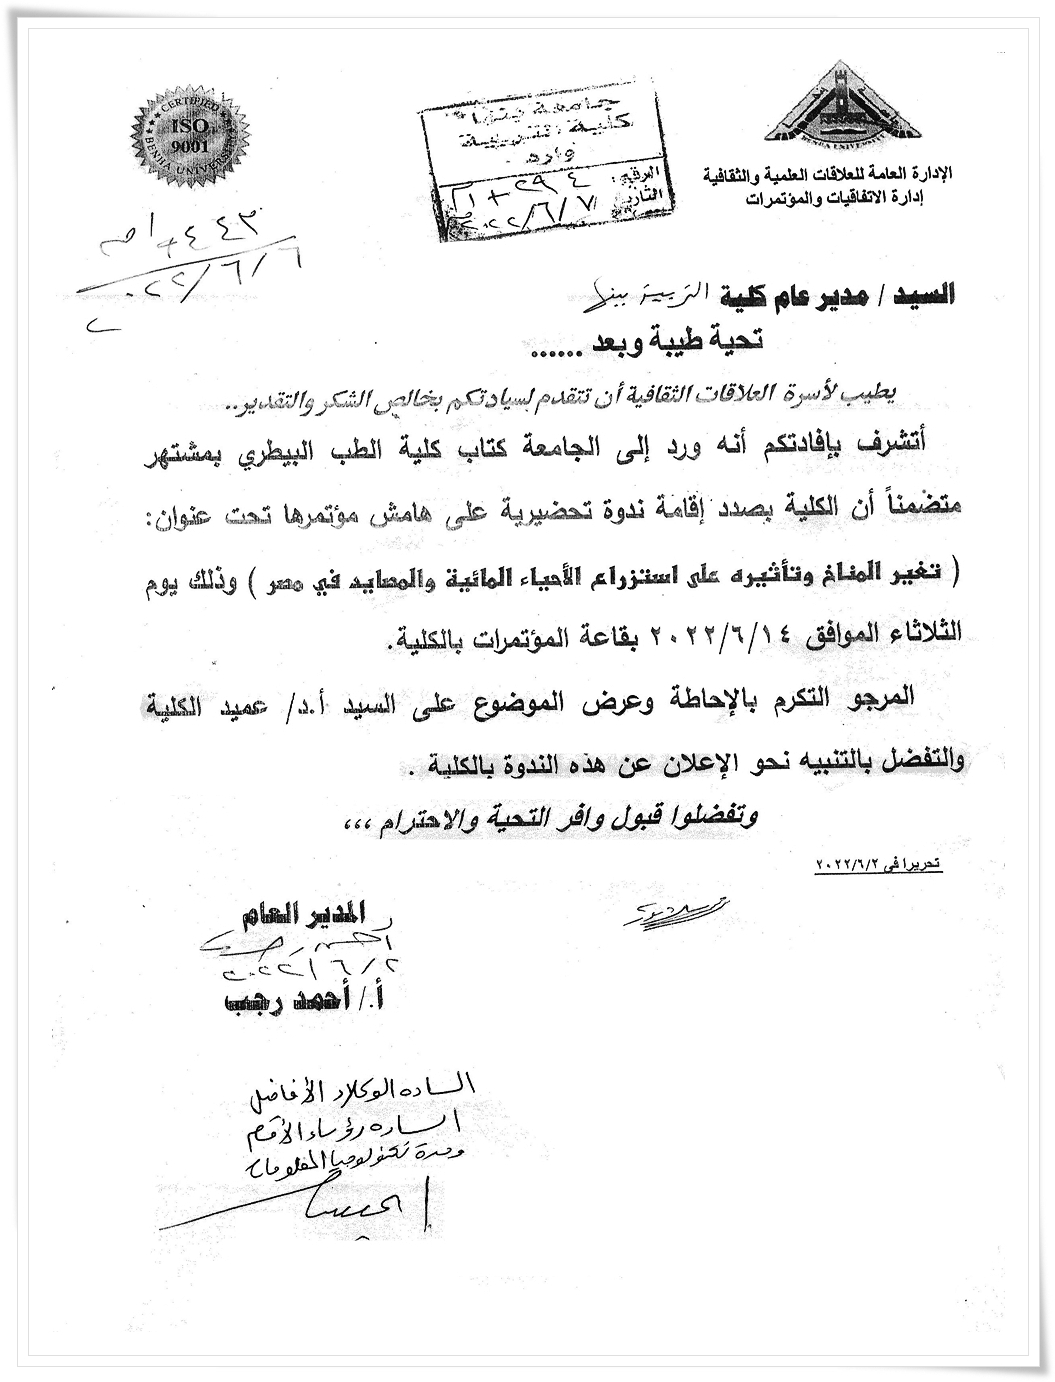 CERTIFIED
ISO
9001
BENHA UNIVERSITY
جامعة بنها
كلية التربية
وارد
الرقم: ٢٩٤
التاريخ ٢٠٢٢/٦/٧
BENHA UNIVERSITY
الإدارة العامة للعلاقات العلمية والثقافية
إدارة الاتفاقيات والمؤتمرات
٤٤٣
٢٠٢٢/٦/٦
السيد / مدير عام كلية التربية ببنها
تحية طيبة وبعد ......
يطيب لأسرة العلاقات الثقافية أن تتقدم لسيادتكم بخالص الشكر والتقدير..
أتشرف بإفادتكم أنه ورد إلى الجامعة كتاب كلية الطب البيطري بمشتهر
متضمناً أن الكلية بصدد إقامة ندوة تحضيرية على هامش مؤتمرها تحت عنوان:
( تغير المناخ وتأثيره على استزراع الأحياء المائية والمصايد في مصر ) وذلك يوم
الثلاثاء الموافق ٢٠٢٢/٦/١٤ بقاعة المؤتمرات بالكلية.
المرجو التكرم بالإحاطة وعرض الموضوع على السيد أ.د/ عميد الكلية
والتفضل بالتنبيه نحو الإعلان عن هذه الندوة بالكلية .
وتفضلوا قبول وافر التحية والاحترام ،،،
تحريرا في ٢٠٢٢/٦/٢
المدير العام
٢٠٢٢/٦/٢
أ./ أحمد رجب
الساده الوكلاء الأفاضل
الساده رؤساء الأقسام
وحدة تكنولوجيا المعلومات